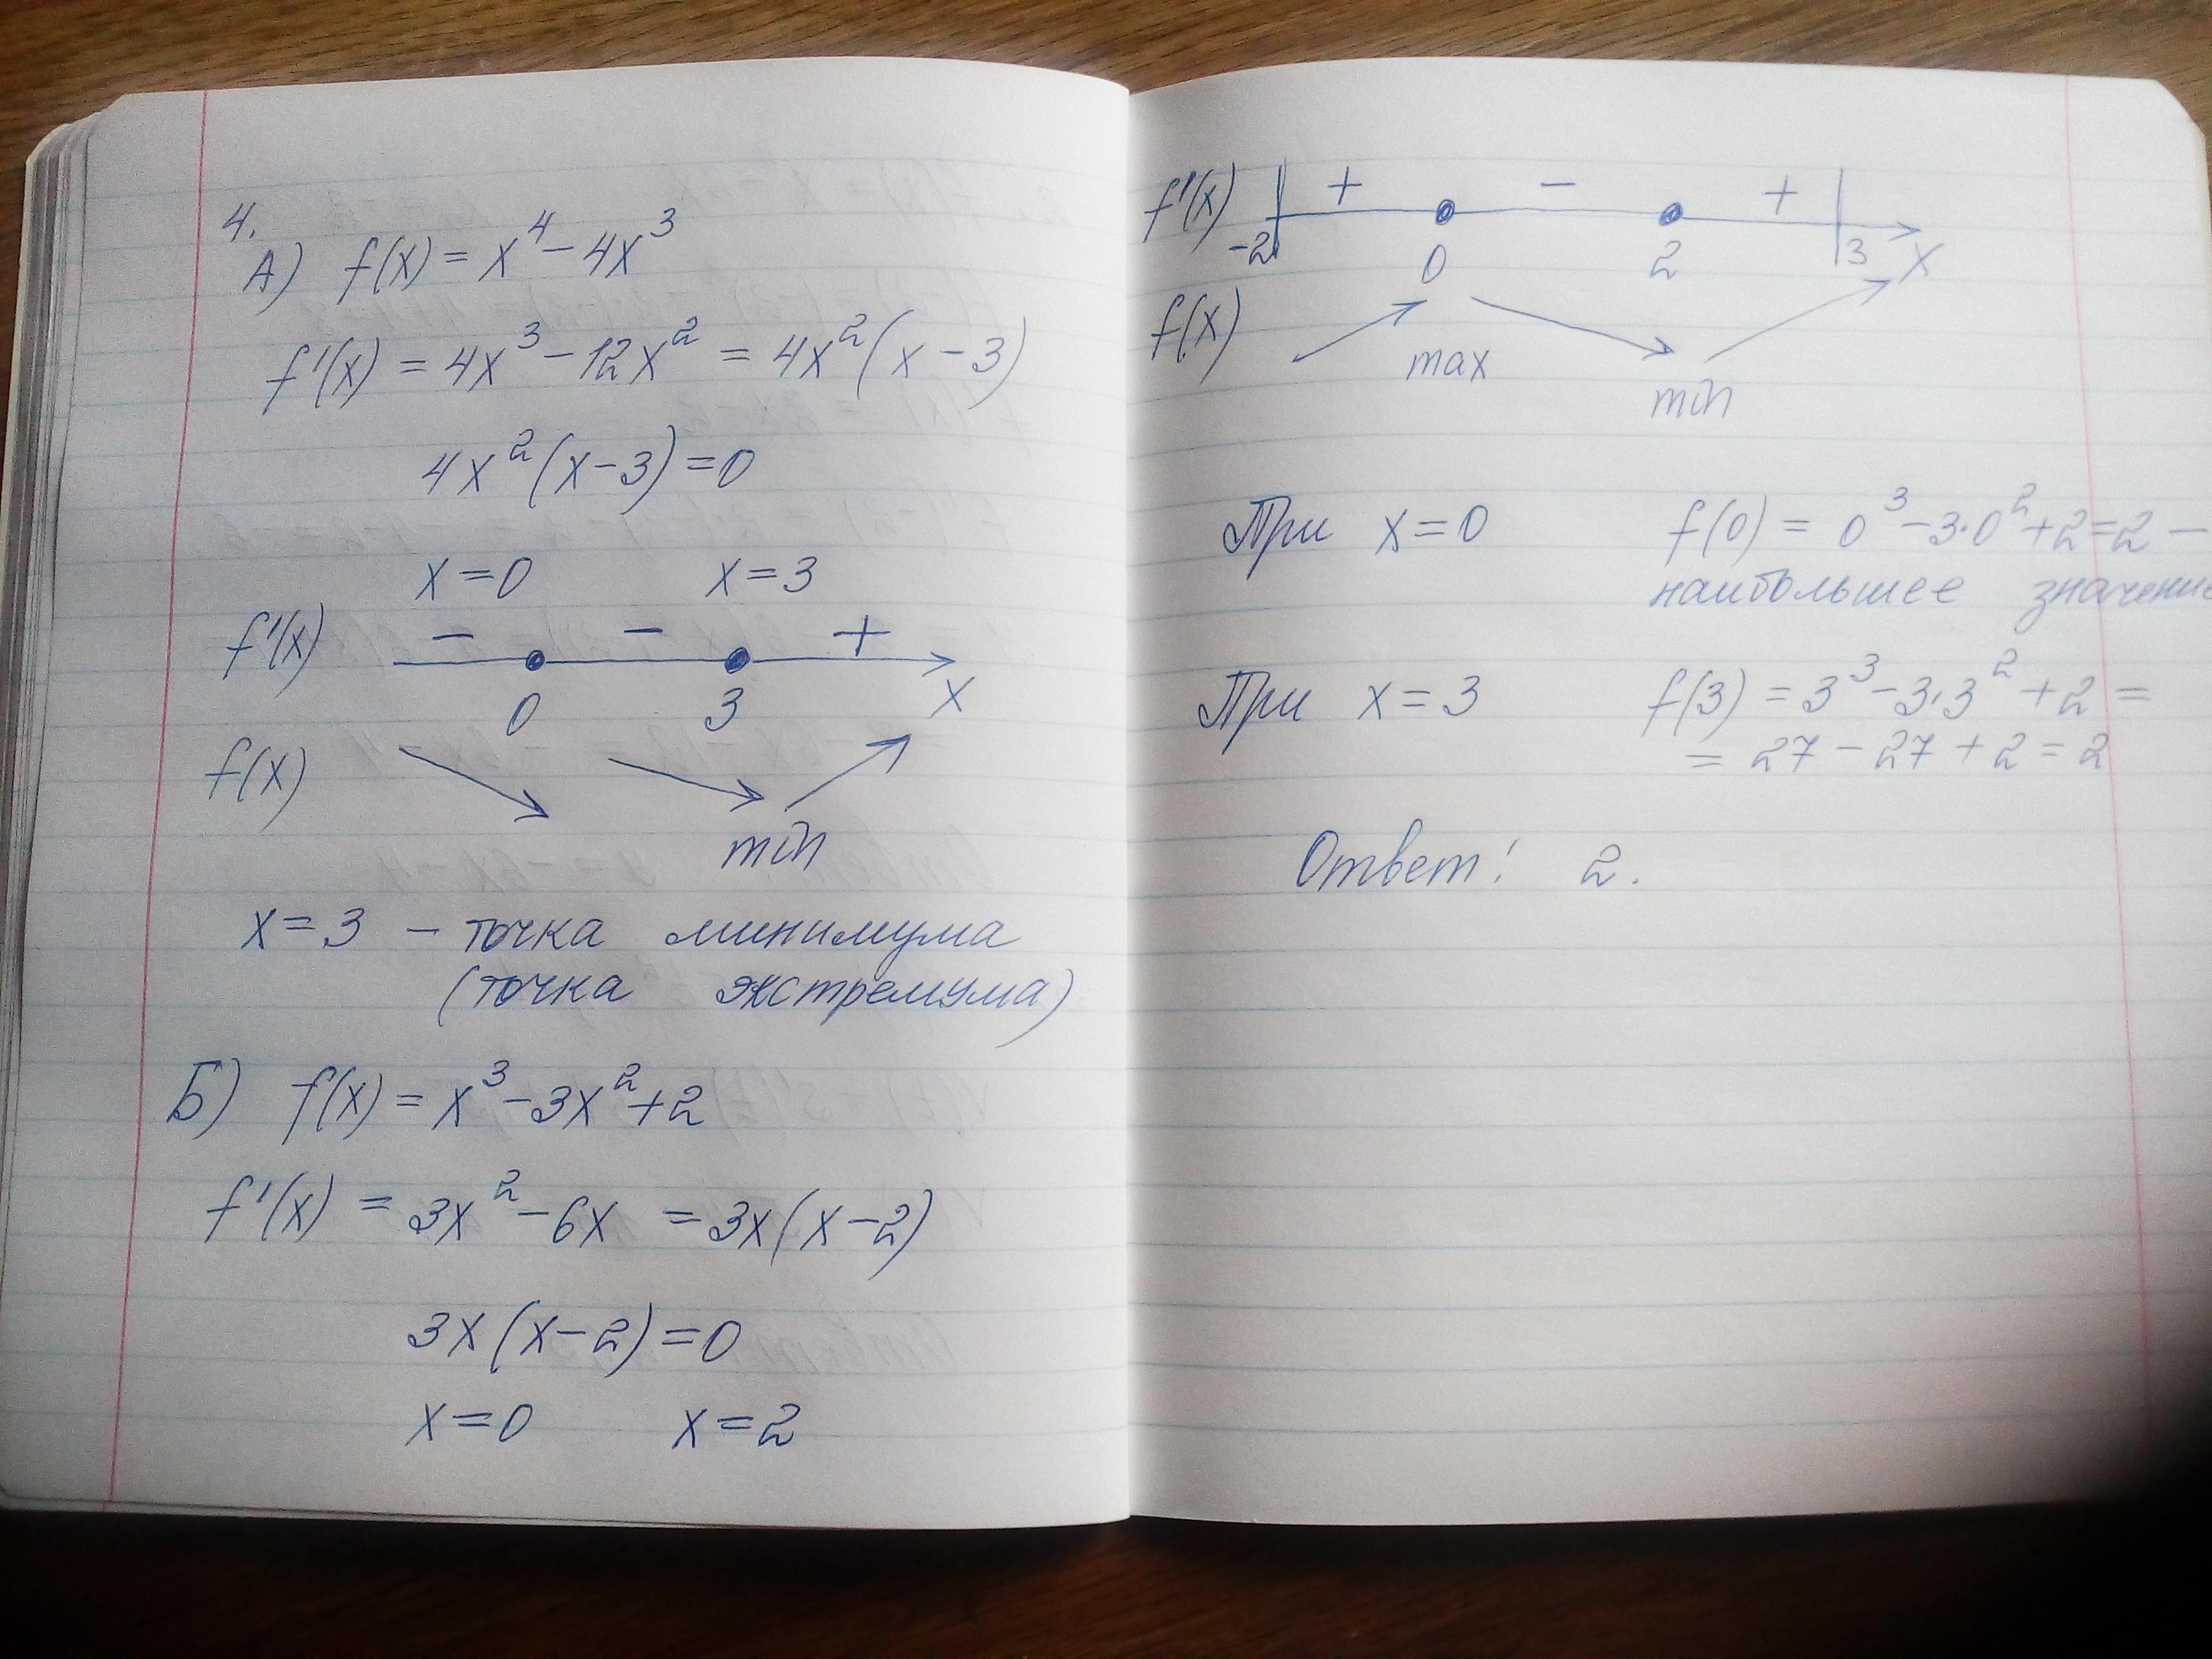 4.
А) f(x) = x⁴ - 4x³
f'(x) = 4x³ - 12x² = 4x²(x - 3)
4x²(x - 3) = 0
x = 0 x = 3
f'(x) - - +
0 3 x
f(x)
min
x = 3 - точка минимума
(точка экстремума)
Б) f(x) = x³ - 3x² + 2
f'(x) = 3x² - 6x = 3x(x - 2)
3x(x - 2) = 0
x = 0 x = 2
f'(x) + - +
-2 0 2 3 x
f(x)
max
min
При x = 0 f(0) = 0³ - 3·0² + 2 = 2 -
наибольшее значение
При x = 3 f(3) = 3³ - 3·3² + 2 =
= 27 - 27 + 2 = 2
Ответ: 2.